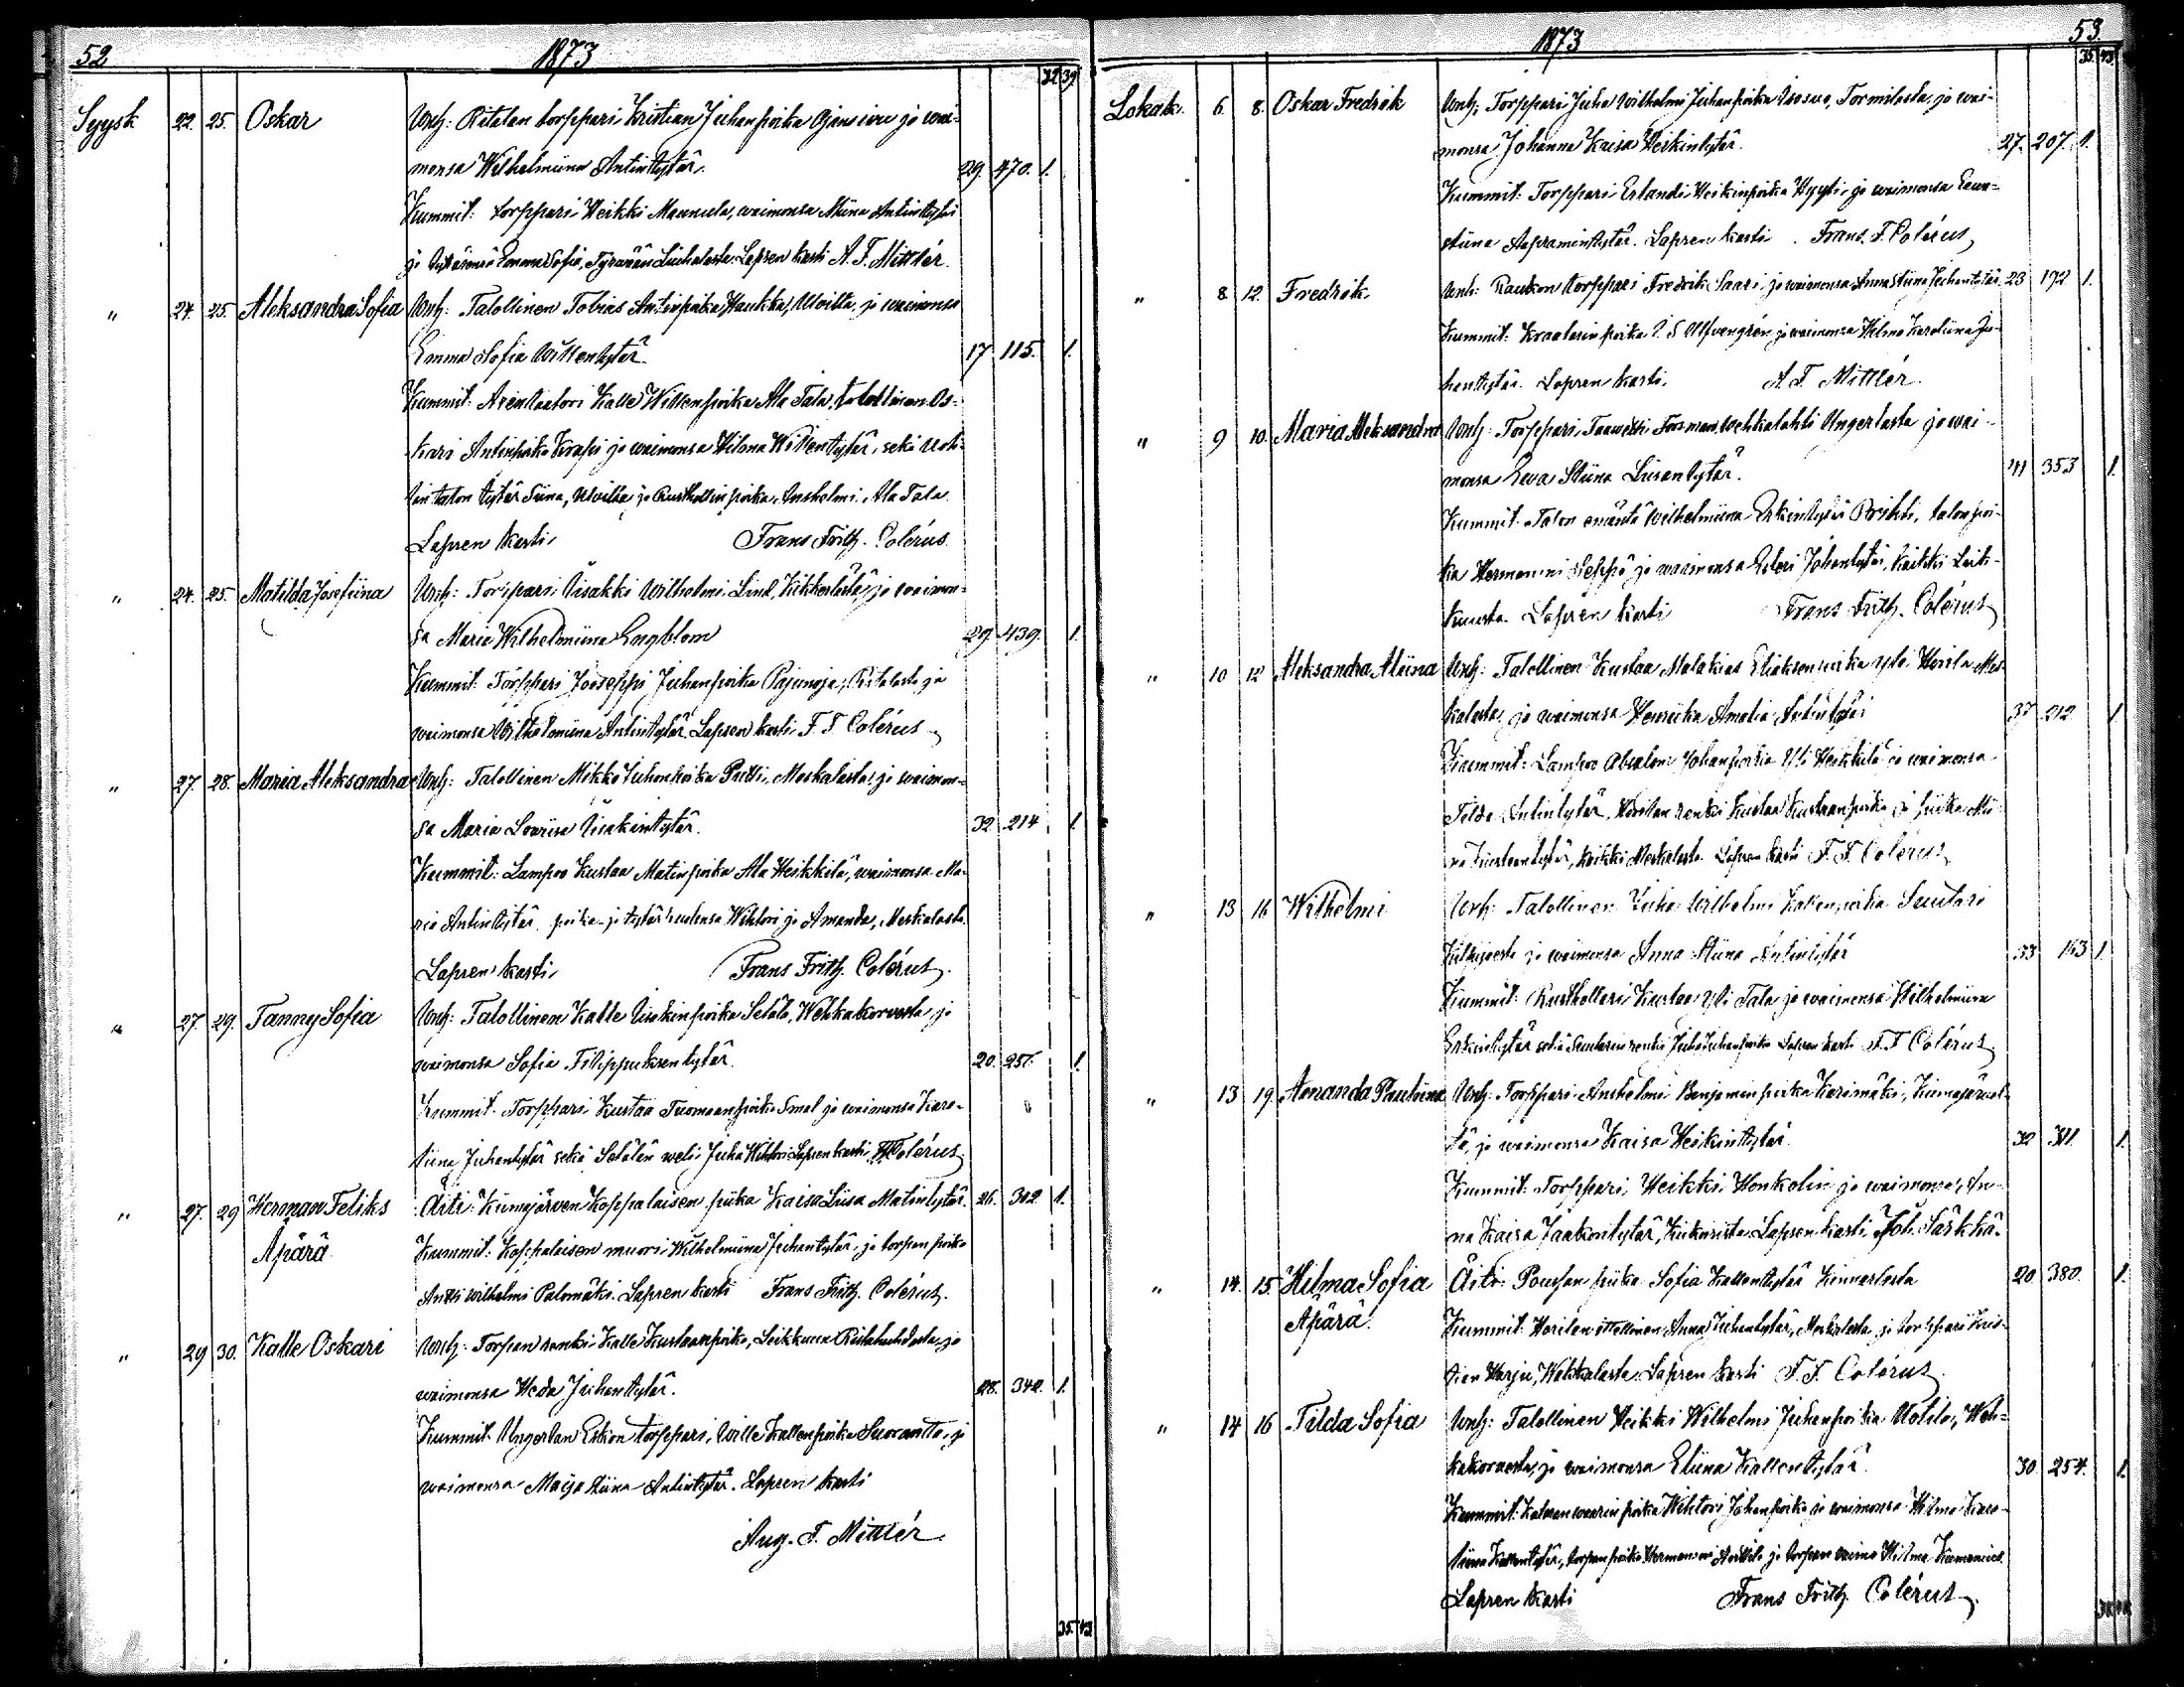 52 1873
32 39
Syysk 22. 25. Oskar Wnh: Ritalan torppari Kristian Juhanpoika Ojansivu ja wai-
monsa Wilhelmiina Antintytär. 29. 470. 1.
Kummit: torppari Heikki Mannula, waimonsa Miina Antintytär
ja tyttärensä Emma Sofia, Tyrwään Liuhalasta. Lapsen kasti A. F. Mittlér.
" 24. 25. Aleksandra Sofia Wnh: Talollinen Tobias Antinpoika Haukka, Uwilta, ja waimonsa
Emma Sofia Willentytär. 17. 115. 1.
Kummit: Arentaatori Kalle Willenpoika Ala Tala, talollinen Os-
kari Antinpoika Krapi ja waimonsa Hilma Willentytär, sekä
talon tytär Siina, Uwilta ja Rusthollin poika Anshelmi Ala Tala.
Lapsen kasti, Frans Frith. Colérus.
" 24. 25. Matilda Josefiina Wnh: Torppari Iisakki Wilhelmi Lind, Kikkerlästä, ja waimon-
sa Maria Wilhelmiina Engblom 29. 439. 1.
Kummit: Torppari Jooseppi Juhanpoika Pajunoja, Ritalasta ja
waimonsa Wilhelmiina Antintytär. Lapsen kasti F. F. Colérus
" 27. 28. Maria Aleksandra Wnh: Talollinen Mikko Juhanpoika Putti, Meskalasta, ja waimon-
sa Maria Lowiisa Iisakintytär. 32 214 1.
Kummit: Lampoo Kustaa Matinpoika Ala Heikkilä, waimonsa Ma-
ria Antintytär, poika- ja tytär Wihtori ja Amanda, Meskalasta.
Lapsen kasti, Frans Frith. Colérus.
" 27. 29. Fanny Sofia Wnh: Talollinen Kalle Iisakinpoika Setälä, Wehkakorwesta, ja
waimonsa Sofia Filippuksentytär. 20. 1.
Kummit: Torppari Kustaa Tuomaanpoika Smal ja waimonsa Karo-
liina Juhantytär sekä Setälän weli Juha Wihtori. Lapsen kasti F. F. Colérus.
" 27. 29 Herman Feliks Äiti: Kiimajärwen Koppalaisen piika Kaisa Liisa Matintytär. 26. 302 1.
Äpärä Kummit: Koppalaisen muori Wilhelmiina Juhantytär, ja torpan poika
Antti Wilhelmi Palomäki. Lapsen kasti Frans Frith. Colérus.
" 29 30. Kalle Oskari Wnh: Torpan renki Kalle Kustaanpoika, ja
waimonsa Heda Juhantytär. 28. 342. 1.
Kummit: Ungerlan Eskon torppari, Wille Kallenpoika Suoranta, ja
waimonsa Maija Stiina Antintytär. Lapsen kasti
Aug. F. Mittlér.
1873 53
Lokak. 6 8. Oskar Fredrik Wnh: Torppari Juha Wilhelmi Juhanpoika Isosuo, Tormilasta, ja wai-
monsa Johanna Kaisa Heikintytär. 27. 207. 1.
Kummit: Torppari Erlandi Heikinpoika Hyyti, ja waimonsa Eewa-
stiina Aapramintytär. Lapsen kasti Frans. F. Colérus,
" 8 12. Fredrik. Wnh: Raukon torppari Fredrik Saari, ja waimonsa Anna Stiina Juhantytär 23 172 1.
Kummit: Kraatarin poika ja waimonsa Hilma Karoliina Ju-
hantytär. Lapsen kasti. A. F. Mittlér.
" 9 10. Maria Aleksandra Wnh: Torppari, Taawetti Forsman, Wehkalahti Ungerlasta ja wai-
monsa Eewa Stiina Liisantytär. 41 353 1.
Kummit: Talon emäntä Wilhelmiina Erkintytär Prihti, talonpoi-
ka Hermanni Seppä ja waimonsa Esteri Johantytär, kaikki Leik-
kuusta. Lapsen kasti Frans Frith. Colérus
" 10 12 Aleksandra Aliina Wnh: Talollinen Kustaa Malakias Eliaksenpoika Yli Horila Mes-
kalasta, ja waimonsa Henriika Amalia Antintytär 37 212. 1.
Kummit: Lampoo Absalon Johanpoika Yli Heikkilä ja waimonsa
Tilda Antintytär, Horilan renki Kustaa Kustaanpoika ja piika Mii-
na Kustaantytär, kaikki Meskalasta. Lapsen kasti F. F. Colérus
" 13 16 Wilhelmi Wnh: Talollinen Juha Wilhelmi Kallenpoika Suutari
ja waimonsa Anna Stiina Antintytär 33 163 1.
Kummit: Rusthollari Kustaa Yli Tala ja waimonsa Wilhelmiina
Erkintytär sekä Suutarin renki Juha Juhanpoika Lapsen kasti F. F. Colérus.
" 13 19 Amanda Pauliina Wnh: Torppari Anshelmi Benjaminpoika Karimäki, Kiimajärwel-
tä, ja waimonsa Kaisa Heikintytär. 32 311. 1.
Kummit: Torppari Heikki Honkolin ja waimonsa An-
na Kaisa Jaakontytär, Kiikasista. Lapsen kasti, Joh. Särkkä.
" 14. 15. Hilma Sofia Äiti: Poussan piika Sofia Kallentytär Kinnarlasta 20 380. 1.
Äpärä. Kummit: Horilan Anna Juhantytär, Meskalasta, ja torppari Kris-
tian Harju, Wehkalasta. Lapsen kasti F. F. Colérus.
" 14 16 Tilda Sofia Wnh: Talollinen Heikki Wilhelmi Juhanpoika Uotila, Weh-
kakorwesta, ja waimonsa Eliina Kallentytär. 30. 254. 1.
Kummit: poika Wihtori Johanpoika ja waimonsa Hilma Karo-
liina Kallentytär, torpan poika Hermanni Anttila ja torpan waimo Hilma
Lapsen kasti Frans Frith. Colérus.